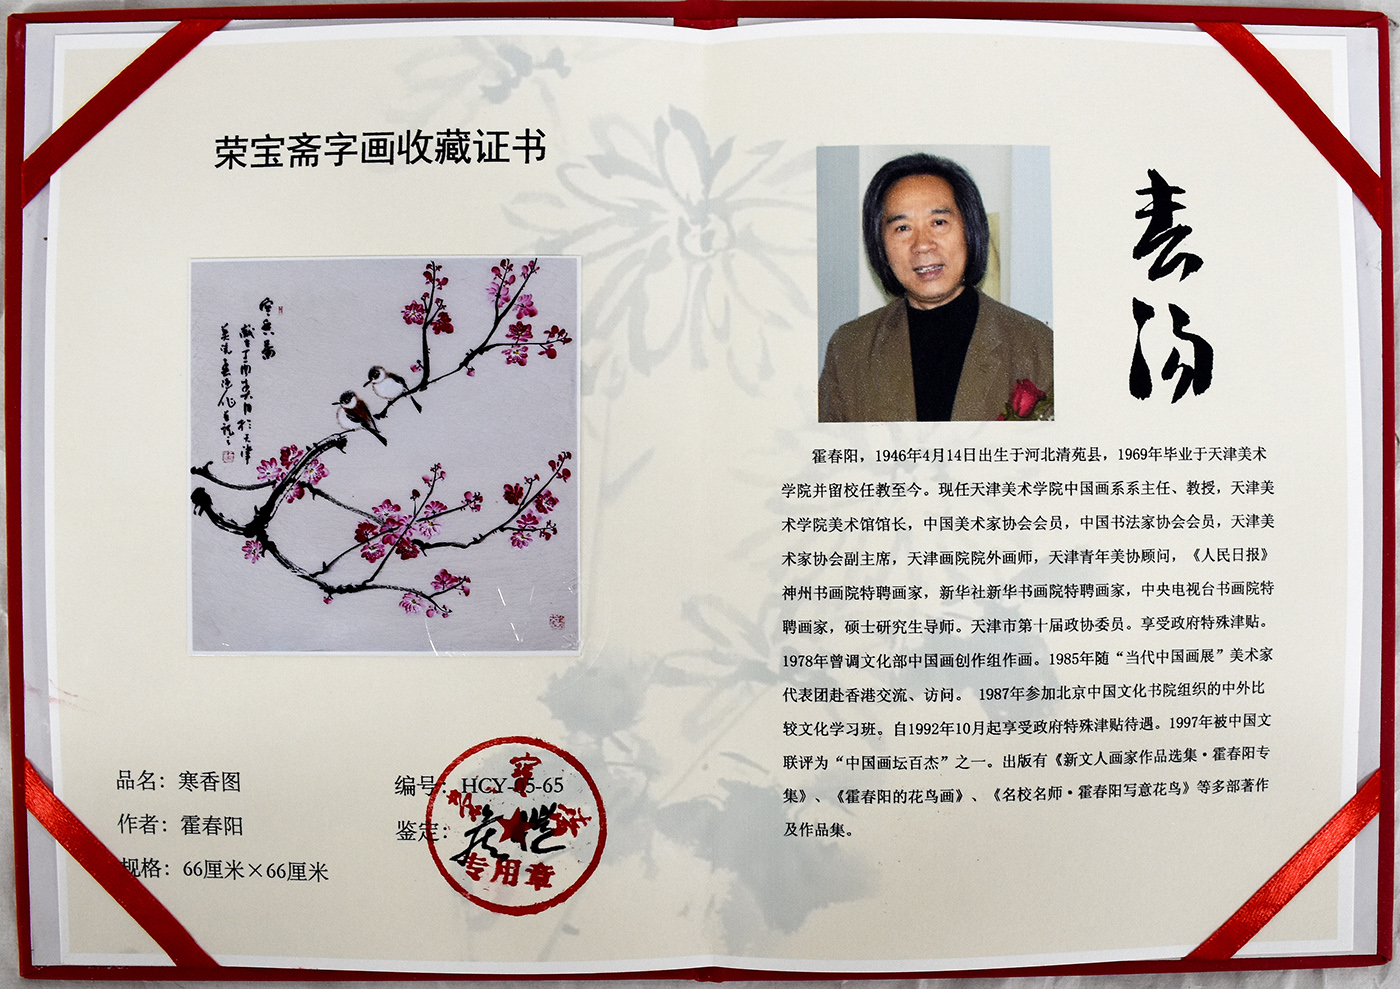 荣宝斋字画收藏证书
品名：寒香图
作者：霍春阳
规格：66厘米×66厘米
编号：HCY-
5-65
鉴定：
专用章
春阳
霍春阳，1946年4月14日出生于河北清苑县，1969年毕业于天津美术
学院并留校任教至今。现任天津美术学院中国画系系主任、教授，天津美
术学院美术馆馆长，中国美术家协会会员，中国书法家协会会员，天津美
术家协会副主席，天津画院院外画师，天津青年美协顾问，《人民日报》
神州书画院特聘画家，新华社新华书画院特聘画家，中央电视台书画院特
聘画家，硕士研究生导师。天津市第十届政协委员。享受政府特殊津贴。
1978年曾调文化部中国画创作组作画。1985年随“当代中国画展”美术家
代表团赴香港交流、访问。 1987年参加北京中国文化书院组织的中外比
较文化学习班。自1992年10月起享受政府特殊津贴待遇。1997年被中国文
联评为“中国画坛百杰”之一。出版有《新文人画家作品选集·霍春阳专
集》、《霍春阳的花鸟画》、《名校名师·霍春阳写意花鸟》等多部著作
及作品集。